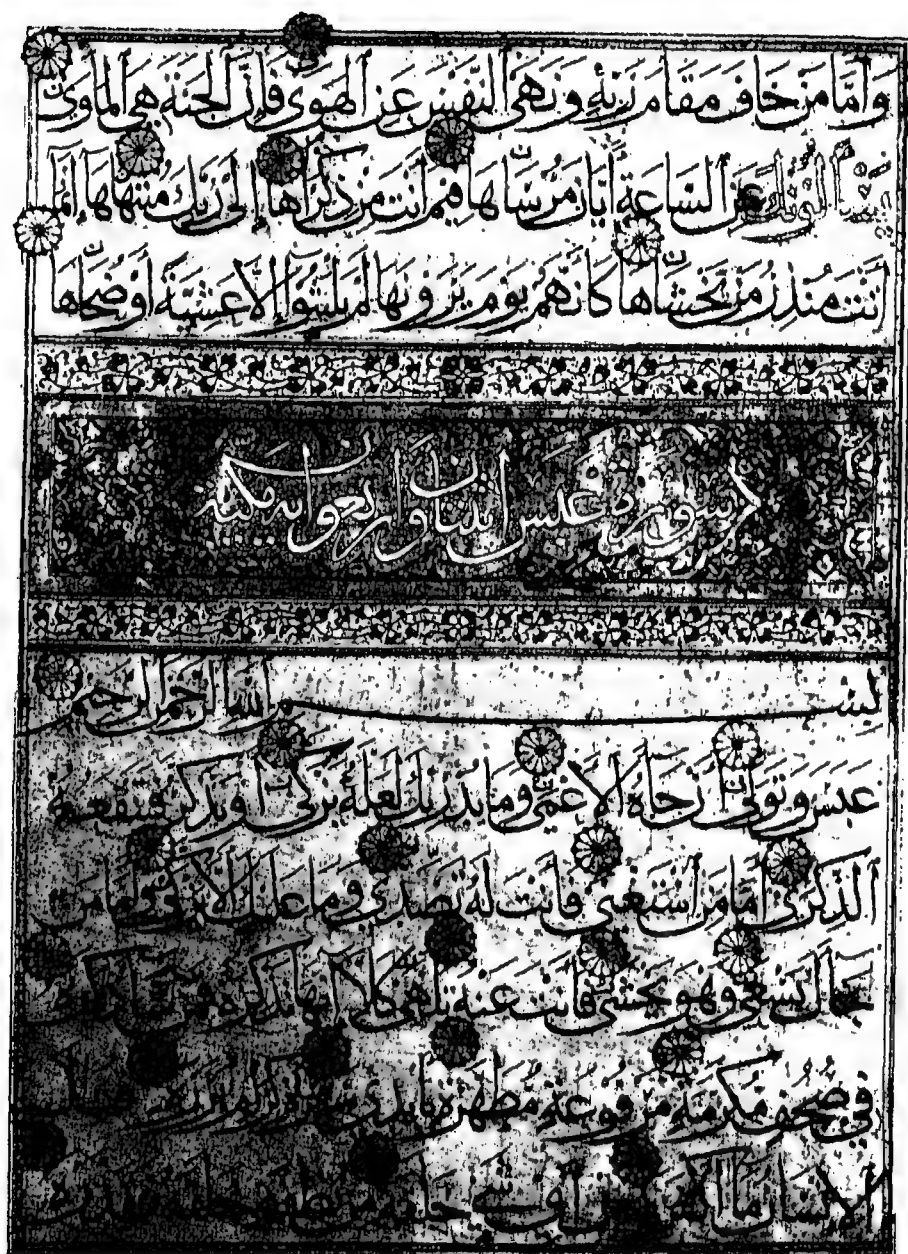 وَأَمَّا مَنْ خَافَ مَقَامَ رَبِّهِ وَنَهَى النَّفْسَ عَنِ الْهَوَى فَإِنَّ الْجَنَّةَ هِيَ الْمَأْوَى
عَنِ السَّاعَةِ أَيَّانَ مُرْسَاهَا فِيمَ أَنْتَ مِنْ ذِكْرَاهَا إِلَى رَبِّكَ مُنْتَهَاهَا إِنَّمَا
أَنْتَ مُنْذِرُ مَنْ يَخْشَاهَا كَأَنَّهُمْ يَوْمَ يَرَوْنَهَا لَمْ يَلْبَثُوا إِلَّا عَشِيَّةً أَوْ ضُحَاهَا
سورة عبس اثنتان واربعون اية مكية
بسم الله الرحمن الرحيم
عَبَسَ وَتَوَلَّى أَنْ جَاءَهُ الْأَعْمَى وَمَا يُدْرِيكَ لَعَلَّهُ يَزَّكَّى أَوْ يَذَّكَّرُ فَتَنْفَعَهُ
الذِّكْرَى أَمَّا مَنِ اسْتَغْنَى فَأَنْتَ لَهُ تَصَدَّى وَمَا عَلَيْكَ أَلَّا يَزَّكَّى وَأَمَّا مَنْ
جَاءَكَ يَسْعَى وَهُوَ يَخْشَى فَأَنْتَ عَنْهُ تَلَهَّى كَلَّا إِنَّهَا تَذْكِرَةٌ فَمَنْ شَاءَ ذَكَرَهُ
فِي صُحُفٍ مُكَرَّمَةٍ مَرْفُوعَةٍ مُطَهَّرَةٍ بِأَيْدِي
الْإِنْسَانُ مَا أَكْفَرَهُ